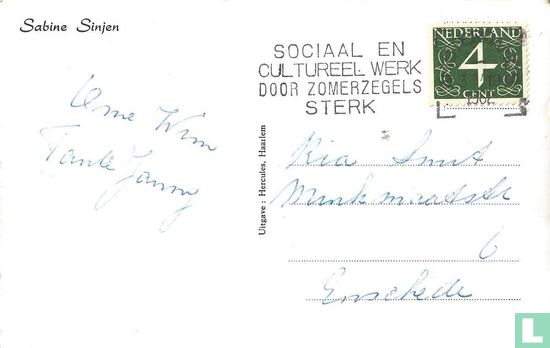 Sabine Sinjen
SOCIAAL EN
CULTUREEL WERK
DOOR ZOMERZEGELS
STERK
NEDERLAND
4
CENT
Ome Wim
Tante Janny
Uitgave : Hercules, Haarlem
Ria Smit
6
Enschede
catawiki